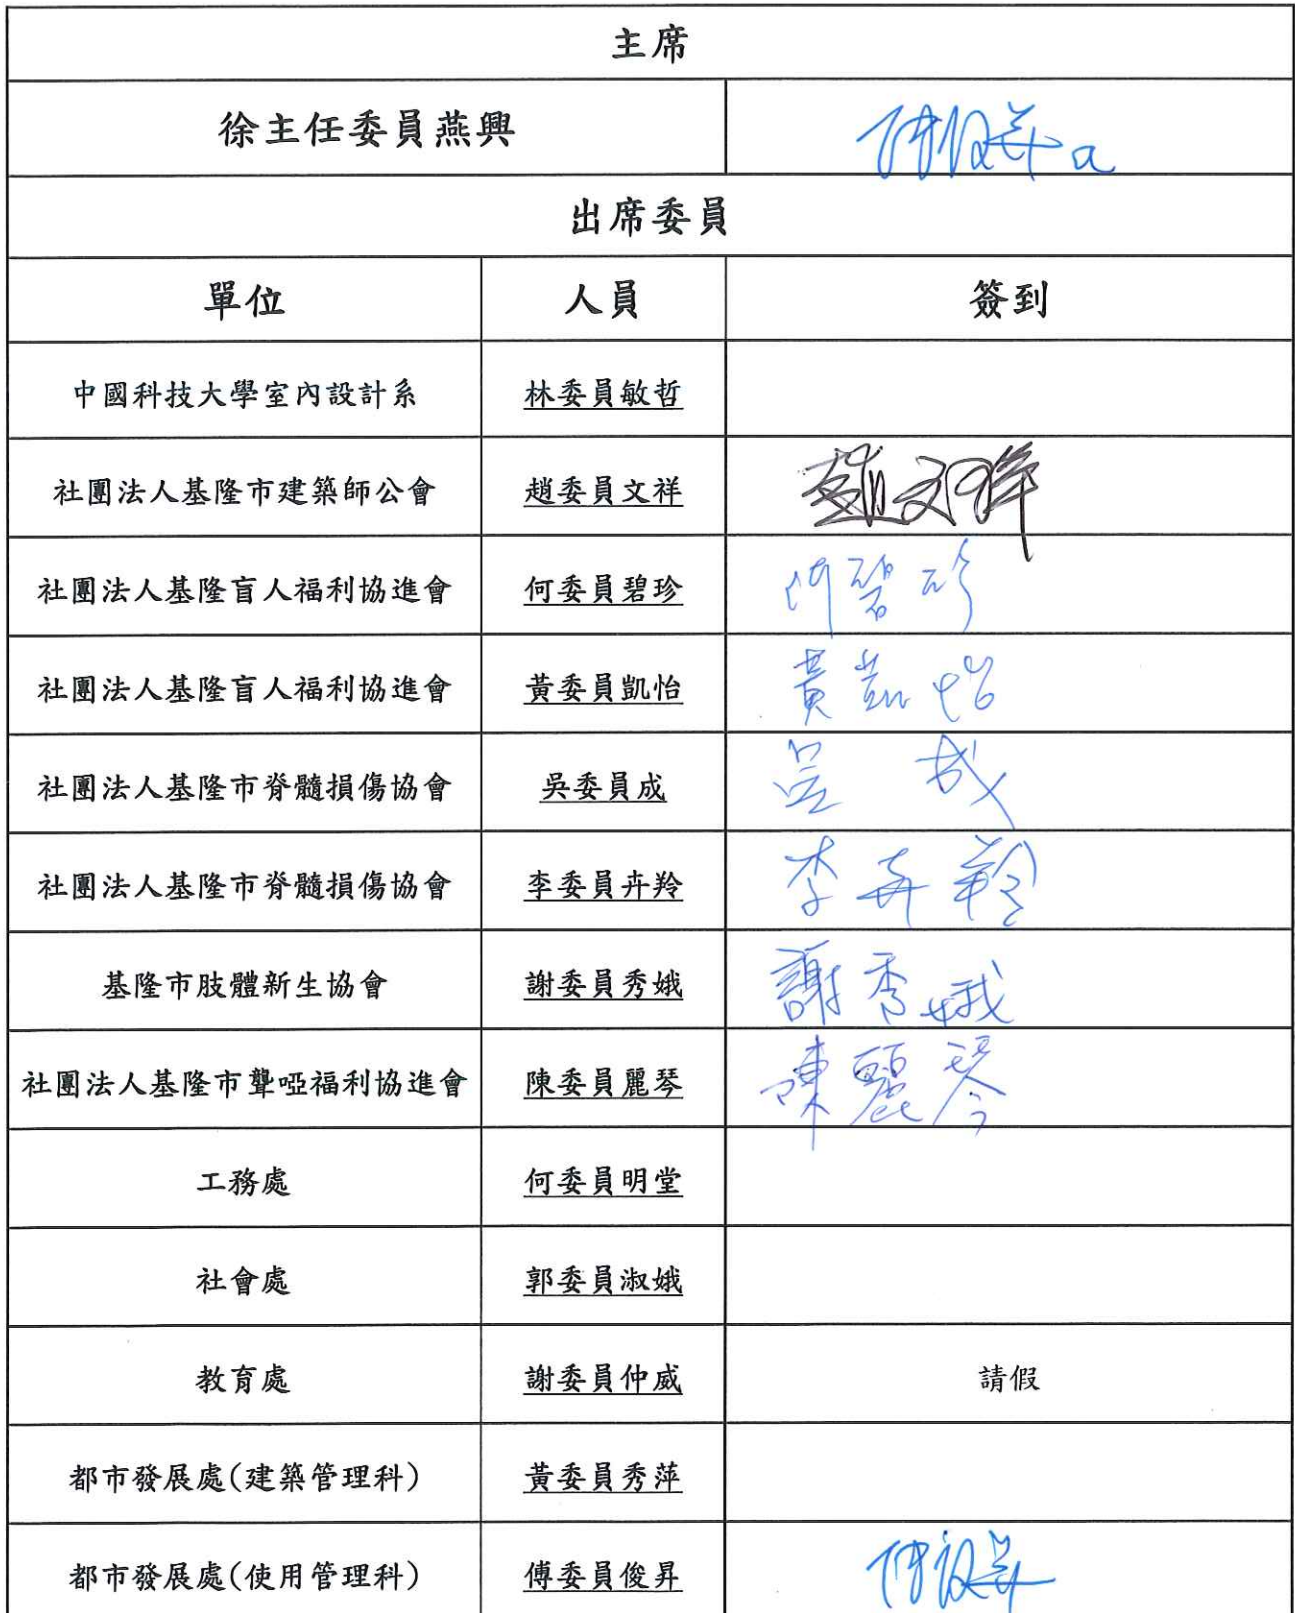 主席
徐主任委員燕興 傅俊昇 代
出席委員
單位 人員 簽到
中國科技大學室內設計系 林委員敏哲
社團法人基隆市建築師公會 趙委員文祥 趙文祥
社團法人基隆盲人福利協進會 何委員碧珍 何碧珍
社團法人基隆盲人福利協進會 黃委員凱怡 黃凱怡
社團法人基隆市脊髓損傷協會 吳委員成 吳成
社團法人基隆市脊髓損傷協會 李委員卉羚 李卉羚
基隆市肢體新生協會 謝委員秀娥 謝秀娥
社團法人基隆市聾啞福利協進會 陳委員麗琴 陳麗琴
工務處 何委員明堂
社會處 郭委員淑娥
教育處 謝委員仲威 請假
都市發展處(建築管理科) 黃委員秀萍
都市發展處(使用管理科) 傅委員俊昇 傅俊昇